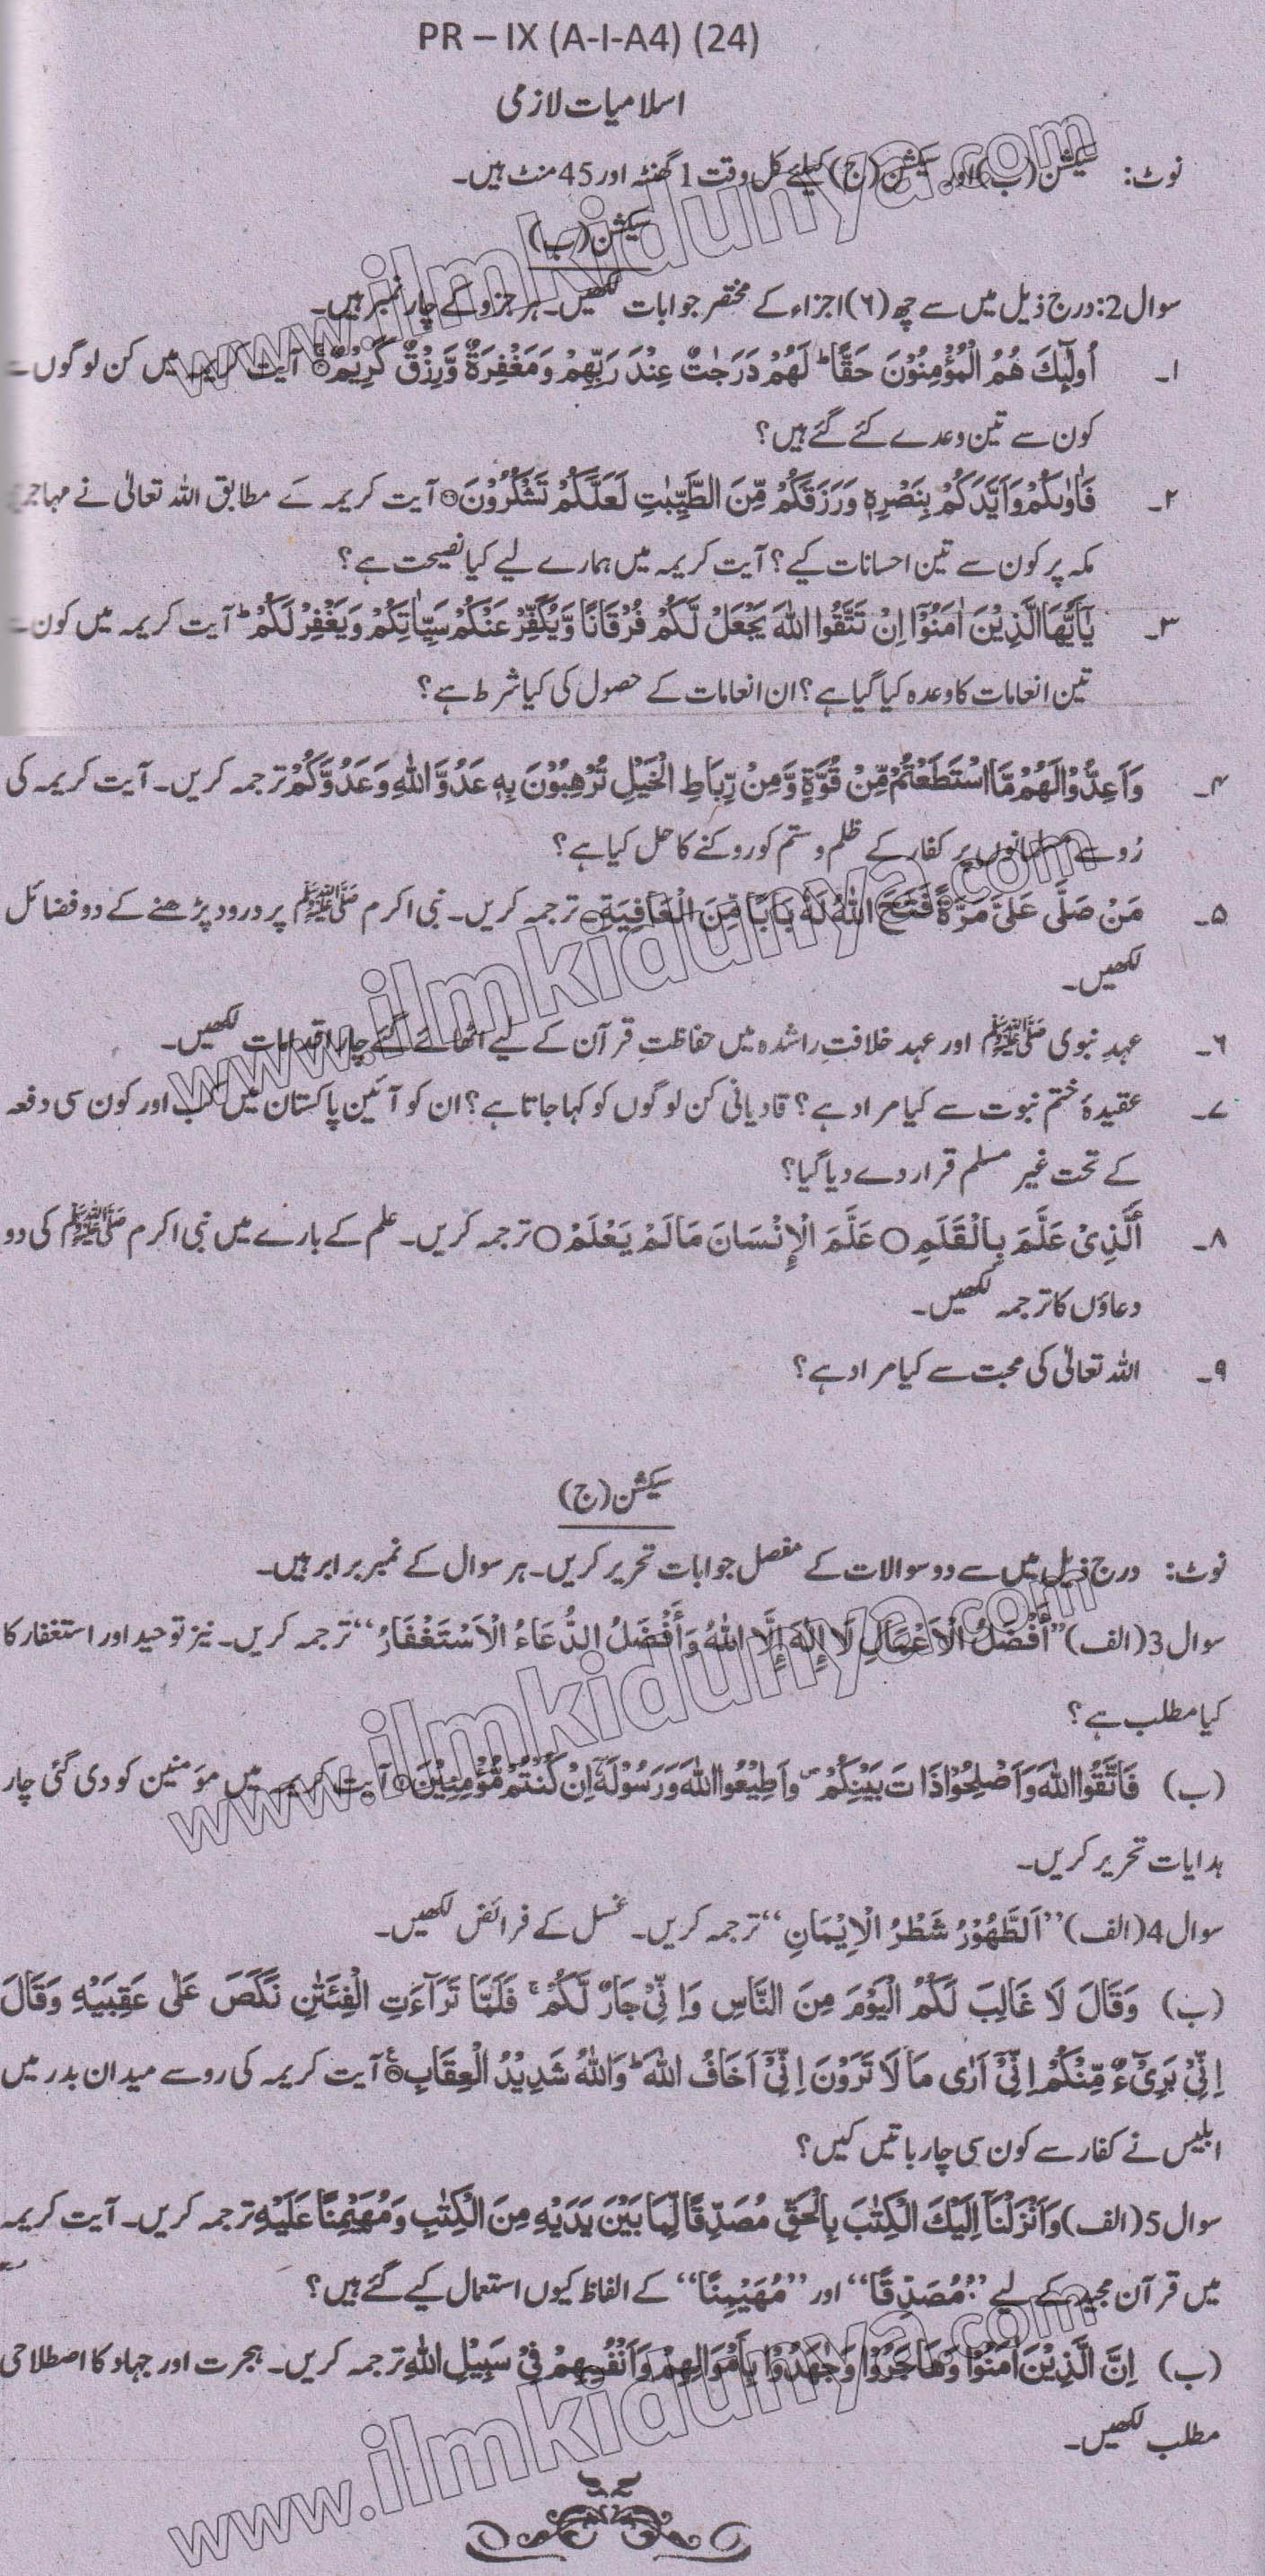 PR – IX (A-I-A4) (24)
اسلامیات لازمی
نوٹ: سیکشن (ب) اور سیکشن (ج) کیلئے کل وقت 1 گھنٹہ اور 45 منٹ ہیں۔
سیکشن (ب)
سوال 2: درج ذیل میں سے چھ (۶) اجزاء کے مختصر جوابات لکھیں۔ ہر جزو کے چار نمبر ہیں۔
۱۔ اُولٰٓئِكَ هُمُ الْمُؤْمِنُوْنَ حَقًّا ؕ لَهُمْ دَرَجٰتٌ عِنْدَ رَبِّهِمْ وَمَغْفِرَةٌ وَّرِزْقٌ كَرِيْمٌ آیت کریمہ میں کن لوگوں سے
کون سے تین وعدے کئے گئے ہیں؟
۲۔ فَاٰوٰىكُمْ وَاَيَّدَكُمْ بِنَصْرِهٖ وَرَزَقَكُمْ مِّنَ الطَّيِّبٰتِ لَعَلَّكُمْ تَشْكُرُوْنَ آیت کریمہ کے مطابق اللہ تعالیٰ نے
مکہ پر کون سے تین احسانات کیے؟ آیت کریمہ میں ہمارے لیے کیا نصیحت ہے؟
۳۔ يٰٓاَيُّهَا الَّذِيْنَ اٰمَنُوْٓا اِنْ تَتَّقُوا اللّٰهَ يَجْعَلْ لَّكُمْ فُرْقَانًا وَّيُكَفِّرْ عَنْكُمْ سَيِّاٰتِكُمْ وَيَغْفِرْ لَكُمْ ؕ آیت کریمہ میں کون
تین انعامات کا وعدہ کیا گیا ہے؟ ان انعامات کے حصول کی کیا شرط ہے؟
۴۔ وَاَعِدُّوْا لَهُمْ مَّا اسْتَطَعْتُمْ مِّنْ قُوَّةٍ وَّمِنْ رِّبَاطِ الْخَيْلِ تُرْهِبُوْنَ بِهٖ عَدُوَّ اللّٰهِ وَعَدُوَّكُمْ ترجمہ کریں۔ آیت کریمہ کی
رُو سے مسلمانوں پر کفار کے ظلم و ستم کو روکنے کا حل کیا ہے؟
۵۔ مَنْ صَلَّى عَلَىَّ مَرَّةً فَتَحَ اللّٰهُ لَهٗ بَابًا مِّنَ الْعَافِيَةِ۔ ترجمہ کریں۔ نبی اکرم ﷺ پر درود پڑھنے کے دو فضائل
لکھیں۔
۶۔ عہدِ نبوی ﷺ اور عہد خلافتِ راشدہ میں حفاظتِ قرآن کے لیے اٹھائے گئے چار اقدامات لکھیں۔
۷۔ عقیدہَ ختم نبوت سے کیا مراد ہے؟ قادیانی کن لوگوں کو کہا جاتا ہے؟ ان کو آئین پاکستان میں کب اور کون سی دفعہ
کے تحت غیر مسلم قرار دے دیا گیا؟
۸۔ اَلَّذِىْ عَلَّمَ بِالْقَلَمِ ○ عَلَّمَ الْاِنْسَانَ مَا لَمْ يَعْلَمْ ○ ترجمہ کریں۔ علم کے بارے میں نبی اکرم ﷺ کی دو
دعاؤں کا ترجمہ لکھیں۔
۹۔ اللہ تعالیٰ کی محبت سے کیا مراد ہے؟
سیکشن (ج)
نوٹ: درج ذیل میں سے دو سوالات کے مفصل جوابات تحریر کریں۔ ہر سوال کے نمبر برابر ہیں۔
سوال 3 (الف) ”أَفْضَلُ الْاَعْمَالِ لَا إِلٰهَ إِلَّا اللّٰهُ وَأَفْضَلُ الدُّعَاءُ الْاَسْتَغْفَارُ“ ترجمہ کریں۔ نیز توحید اور استغفار کا
کیا مطلب ہے؟
(ب) فَاتَّقُوا اللّٰهَ وَاَصْلِحُوْا ذَاتَ بَيْنِكُمْ وَاَطِيْعُوا اللّٰهَ وَرَسُوْلَهٗٓ اِنْ كُنْتُمْ مُّؤْمِنِيْنَ آیت کریمہ میں مؤمنین کو دی گئی چار
ہدایات تحریر کریں۔
سوال 4 (الف) ”اَلطَّهُوْرُ شَطْرُ الْاِيْمَانِ“ ترجمہ کریں۔ غسل کے فرائض لکھیں۔
(ب) وَقَالَ لَا غَالِبَ لَكُمُ الْيَوْمَ مِنَ النَّاسِ وَاِنِّىْ جَارٌ لَّكُمْ ۚ فَلَمَّا تَرَآءَتِ الْفِئَتٰنِ نَكَصَ عَلٰى عَقِبَيْهِ وَقَالَ
اِنِّىْ بَرِىْٓءٌ مِّنْكُمْ اِنِّىْٓ اَرٰى مَا لَا تَرَوْنَ اِنِّىْٓ اَخَافُ اللّٰهَ ؕ وَاللّٰهُ شَدِيْدُ الْعِقَابِ آیت کریمہ کی رو سے میدان بدر میں
ابلیس نے کفار سے کون سی چار باتیں کیں؟
سوال 5 (الف) وَاَنْزَلْنَآ اِلَيْكَ الْكِتٰبَ بِالْحَقِّ مُصَدِّقًا لِّمَا بَيْنَ يَدَيْهِ مِنَ الْكِتٰبِ وَمُهَيْمِنًا عَلَيْهِ ترجمہ کریں۔ آیت کریمہ
میں قرآن مجید کے لیے ”مُصَدِّقًا“ اور ”مُهَيْمِنًا“ کے الفاظ کیوں استعمال کیے گئے ہیں؟
(ب) اِنَّ الَّذِيْنَ اٰمَنُوْا وَهَاجَرُوْا وَجٰهَدُوْا بِاَمْوَالِهِمْ وَاَنْفُسِهِمْ فِىْ سَبِيْلِ اللّٰهِ ترجمہ کریں۔ ہجرت اور جہاد کا اصطلاحی
مطلب لکھیں۔
www.ilmkidunya.com
www.ilmkidunya.com
www.ilmkidunya.com
www.ilmkidunya.com